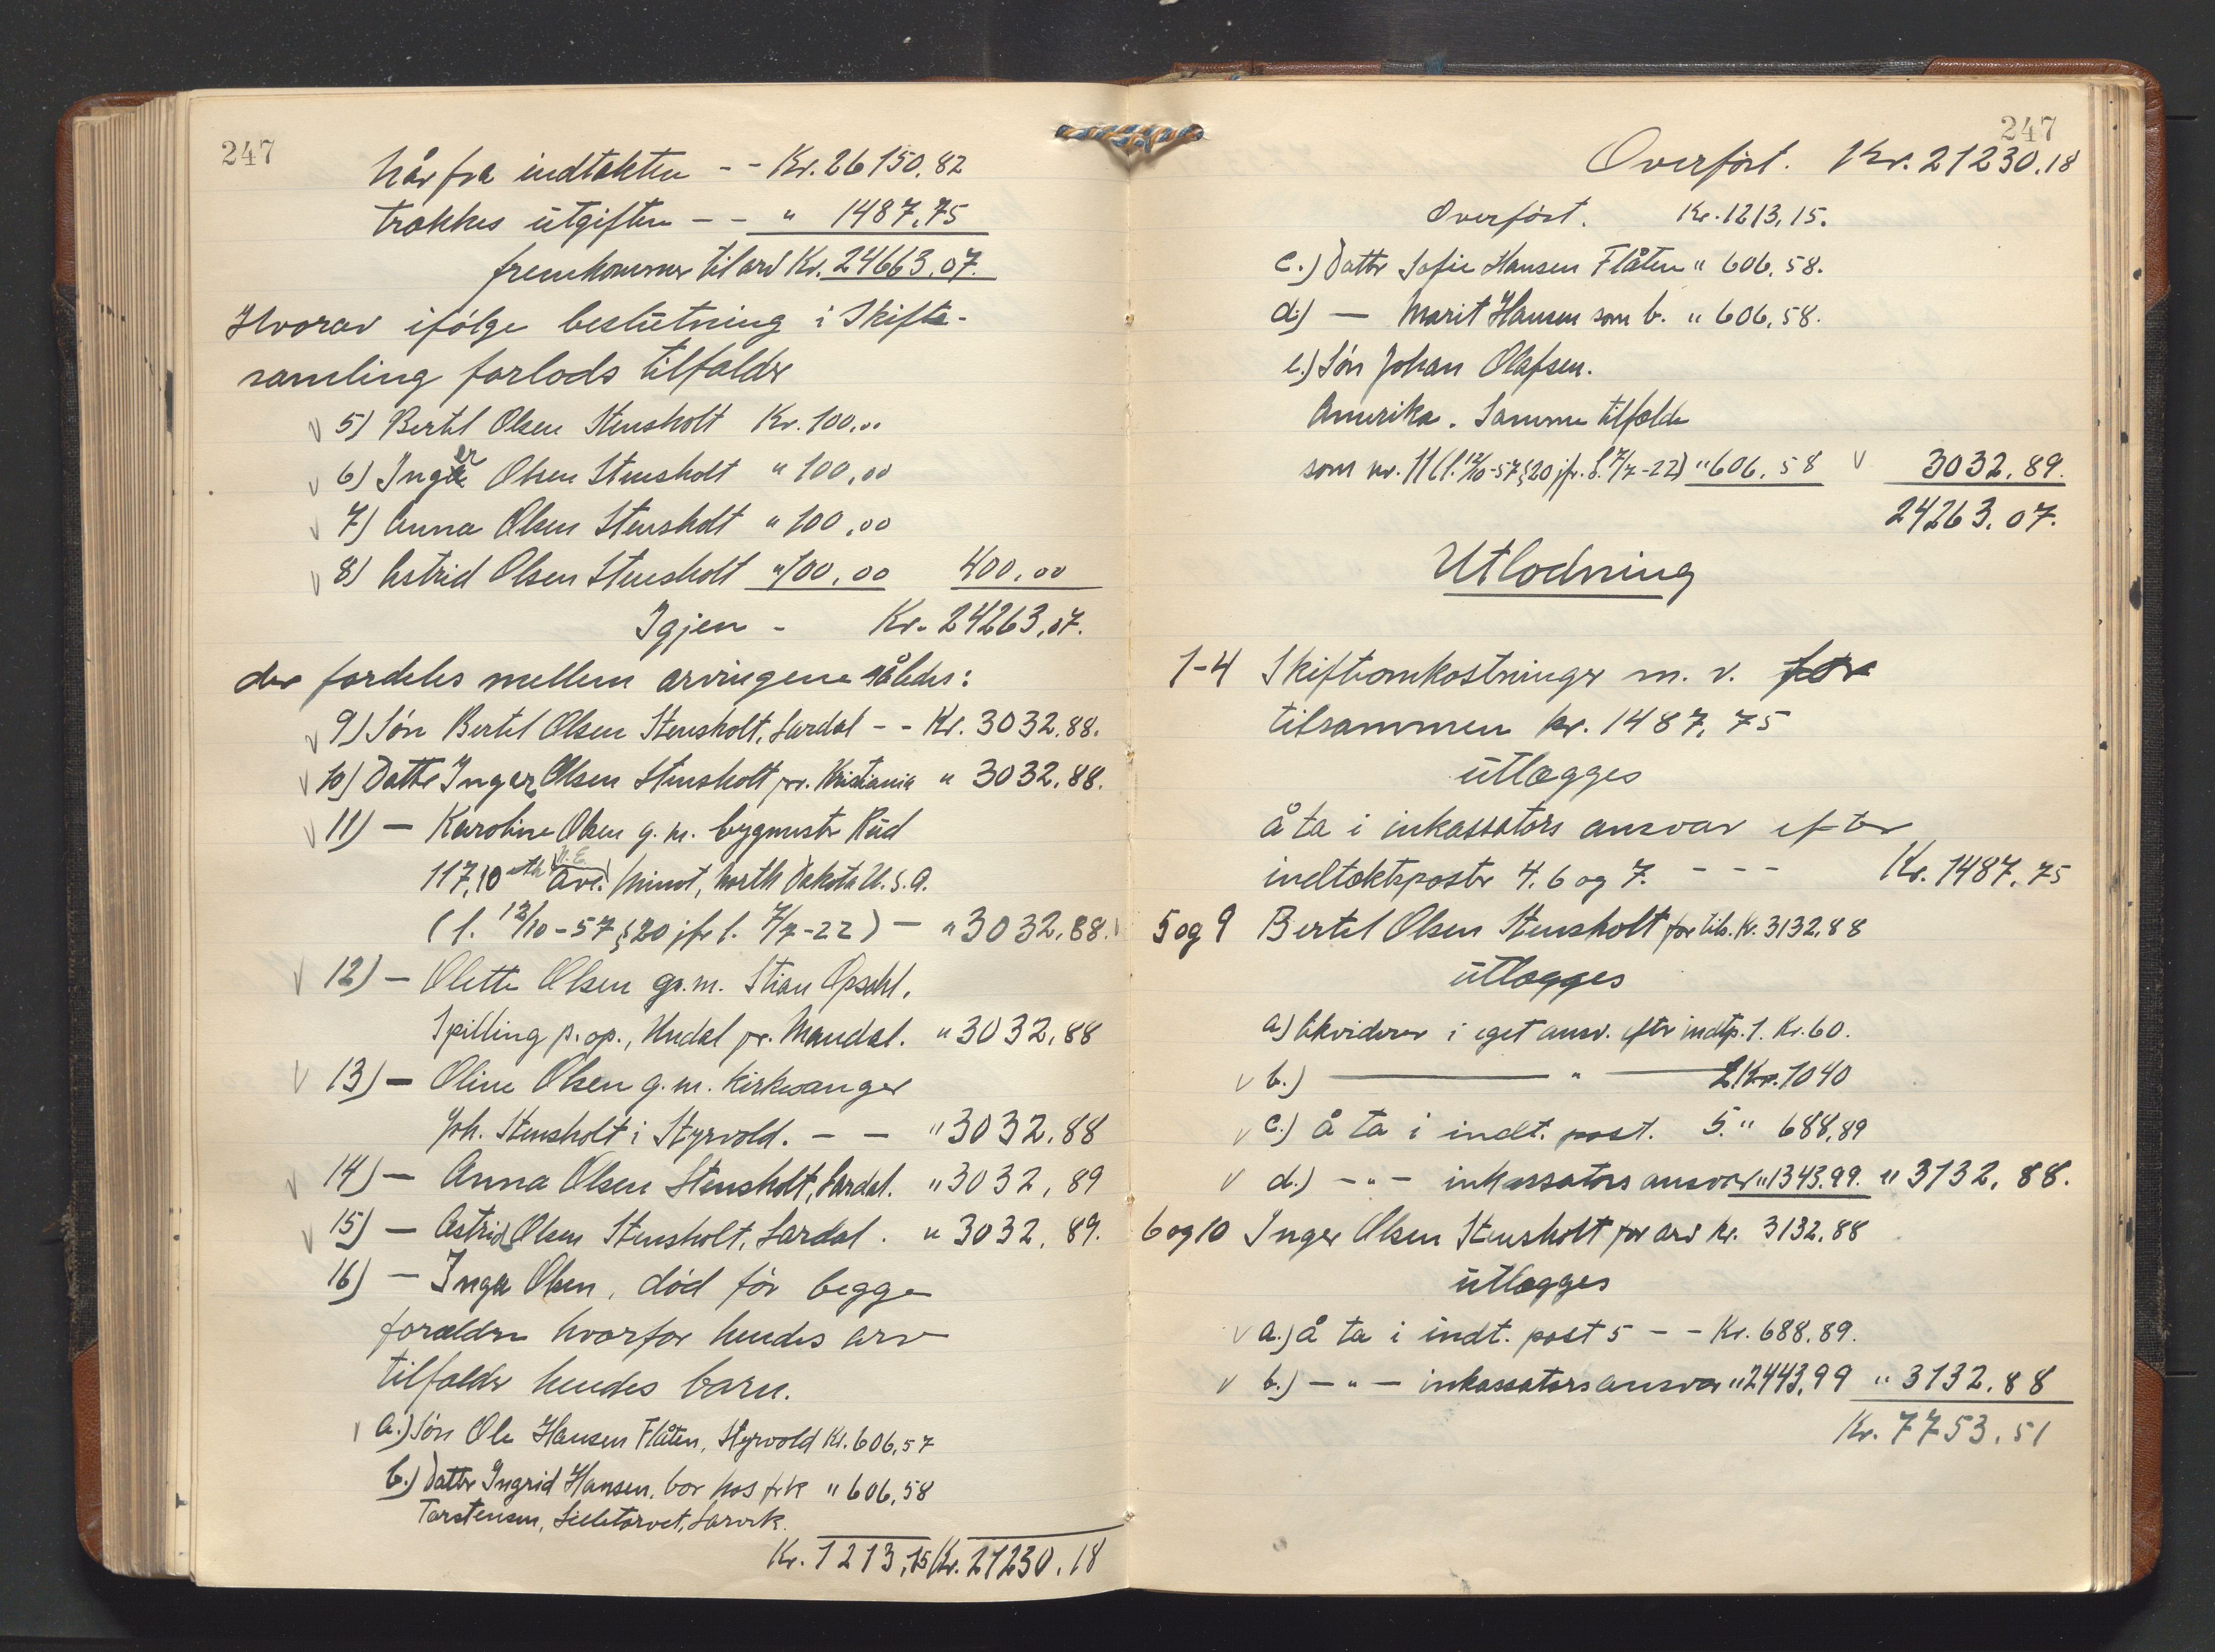 247
Når fra indtækten - - Kr. 26150.82
trækkes utgiften - - " 1487.75
fremkommer til arv Kr. 24663.07.
Hvorav ifølge beslutning i Skifte-
samling forlods tilfalder
5) Bertel Olsen Stensholt Kr. 100.00
6) Inger Olsen Stensholt " 100.00
7) Anna Olsen Stensholt " 100.00
8) Astrid Olsen Stensholt " 100.00 400.00
Igjen - Kr. 24263.07.
der fordeles mellem arvingene således:
9) Søn Bertel Olsen Stensholt, Lardal - - Kr. 3032.88.
10) Datter Inger Olsen Stensholt pr. Kristiania " 3032.88.
11) — Karoline Olsen g. m. bygmester Rud
117, 10 th Ave. N.E. Minot, North Dakota U.S.A.
(l. 12/10-57 § 20 jfr l. 7/7-22) — " 3032.88.
12) — Olette Olsen g. m. Stian Opsahl,
Spilling p. op., Undal pr. Mandal. " 3032.88
13) — Oline Olsen g. m. kirkesanger
Joh. Stensholt i Styrvold. — — " 3032.88
14) — Anna Olsen Stensholt, Lardal. " 3032.89
15) — Astrid Olsen Stensholt, Lardal. " 3032.89.
16) — Inga Olsen, død før begge
forældre hvorfor hendes arv
tilfalder hendes barn.
a.) Søn Ole Hansen Flåten, Styrvold Kr. 606,57
b.) Datter Ingrid Hansen, bor hos frk " 606,58
Torstensen, Lilletorvet, Larvik.
Kr. 1213,15 Kr. 21230.18
247
Overført. Kr. 21230.18
Overført. Kr. 1213,15.
c.) Datter Sofie Hansen Flåten " 606,58.
d.) — Marit Hansen som b. " 606,58.
e.) Søn Johan Olafsen.
Amerika. Samme tilfælde
som nr. 11 (l. 12/10-57 § 20 jfr. l. 7/7-22) " 606.58 3032.89.
24263.07.
Utlodning
1-4 Skifteomkostninger m. v. for
tilsammen kr. 1487,75
utlægges
å ta i inkassators ansvar efter
indtektsposter 4. 6 og 7. - - - Kr. 1487.75
5 og 9 Bertel Olsen Stensholt for tils. Kr. 3132,88
utlægges
a) likviderer i eget ansv. efter indtp. 1. Kr. 60.
b.) — " — 2 Kr. 1040
c.) å ta i indt. post. 5. " 688,89
d.) - " - inkassators ansvar " 1343.99. " 3132.88.
6 og 10 Inger Olsen Stensholt for arv kr. 3132.88
utlægges
a.) å ta i indt. post 5 - - Kr. 688.89.
b.) — " — inkassators ansvar " 2443,99 " 3132.88
Kr. 7753.51